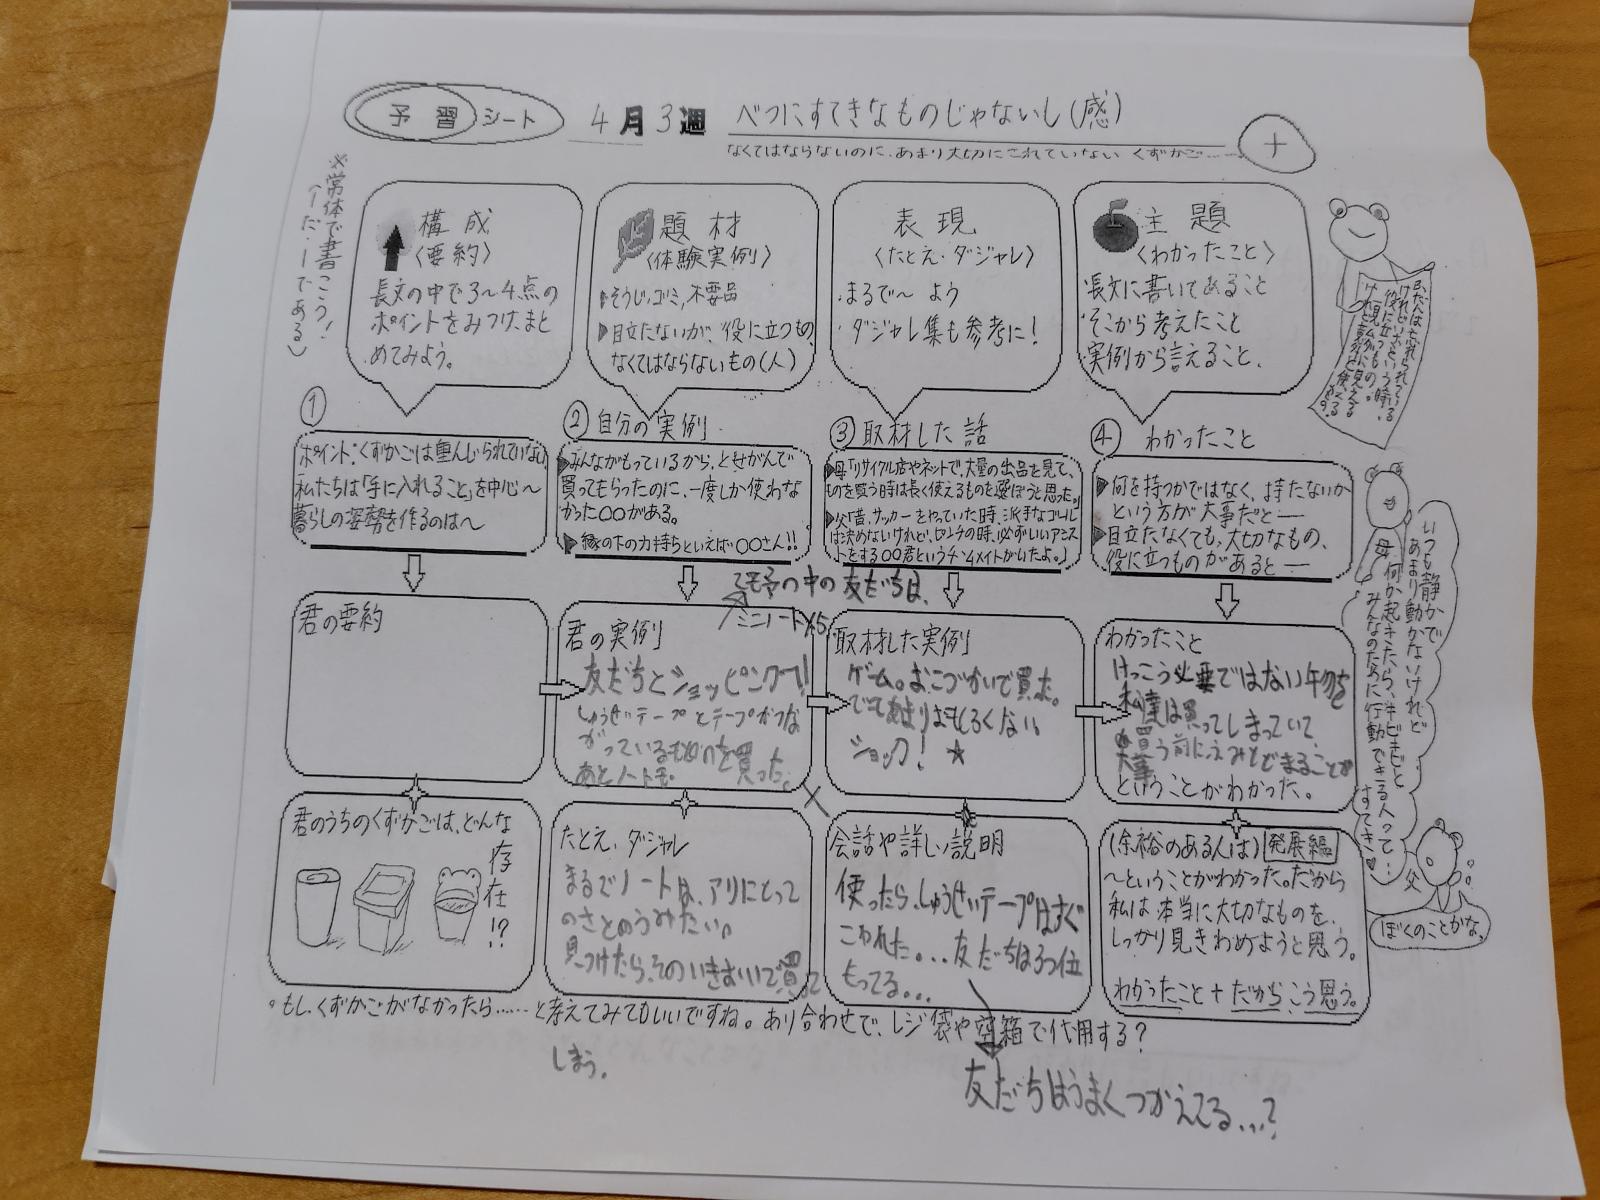 予習シート
4月3週 べつにすてきなものじゃないし(感)
なくてはならないのに、あまり大切にされていない くずかご……
+
※常体で書こう!
(ーだ。ーである)
構成
〈要約〉
長文の中で3〜4点の
ポイントをみつけ、まと
めてみよう。
題材
〈体験実例〉
▶そうじ、ゴミ、不要品
▶目立たないが、役に立つもの、
なくてはならないもの(人)
表現
〈たとえ・ダジャレ〉
まるで〜 よう
ダジャレ集も参考に!
主題
〈わかったこと〉
長文に書いてあること
そこから考えたこと
実例から言えること、
ふだんは忘れられている
けれどいざという時、
役に立つもの。
①
ポイント:くずかごは重んじられていない
私たちは「手に入れること」を中心〜
暮らしの姿勢を作るのは〜
② 自分の実例
▶みんながもっているから、とせがんで
買ってもらったのに、一度しか使わな
かった〇〇がある。
▶縁の下の力持ちといえば〇〇さん!!
③ 取材した話
▶母「リサイクル店やネットで、大量の出品を見て、
ものを買う時は長く使えるものを選ぼうと思った。」
▶父「昔、サッカーをやっていた時、派手なゴール
は決めないけれど、ピンチの時、必ずいいアシス
トをする〇〇君というチームメイトがいたよ。」
④ わかったこと
▶何を持つかではなく、持たないか
という方が大事だと―
▶目立たなくても、大切なもの、
役に立つものがあると―
いつも静かで
あまり動かないけれど
何か起きたら、キビキビと
みんなのために行動できる人って…
すてき♥
母
父
ぼくのことかな。
君の要約
の中の友だちは、
ミニノート×5
君の実例
友だちとショッピングで!
しゅうせいテープとテープがつな
がっているものを買った。
あとノートも
取材した実例
ゲーム。おこづかいで買った。
でもあまりおもしろくない。
ショック! ★
わかったこと
けっこう必要ではない物を
私達は買ってしまっていて
買う前に
大事
ということがわかった。
君のうちのくずかごは、どんな
存在!?
たとえ、ダジャレ
まるでノートは、アリにとって
のさとうのうみたい。
見つけたら、そのいきおいで買って
しまう。
会話や詳しい説明
使ったら、しゅうせいテープはすぐ
こわれた。…友だちは3つ位
もってる…
友だちはうまくつかえてる…?
(余裕のある人は) 発展編
〜ということがわかった。だから
私は、本当に大切なものを、
しっかり見きわめようと思う。
わかったこと+だから、こう思う。
。もし、くずかごがなかったら……と考えてみてもいいですね。あり合わせで、レジ袋や空箱で代用する?